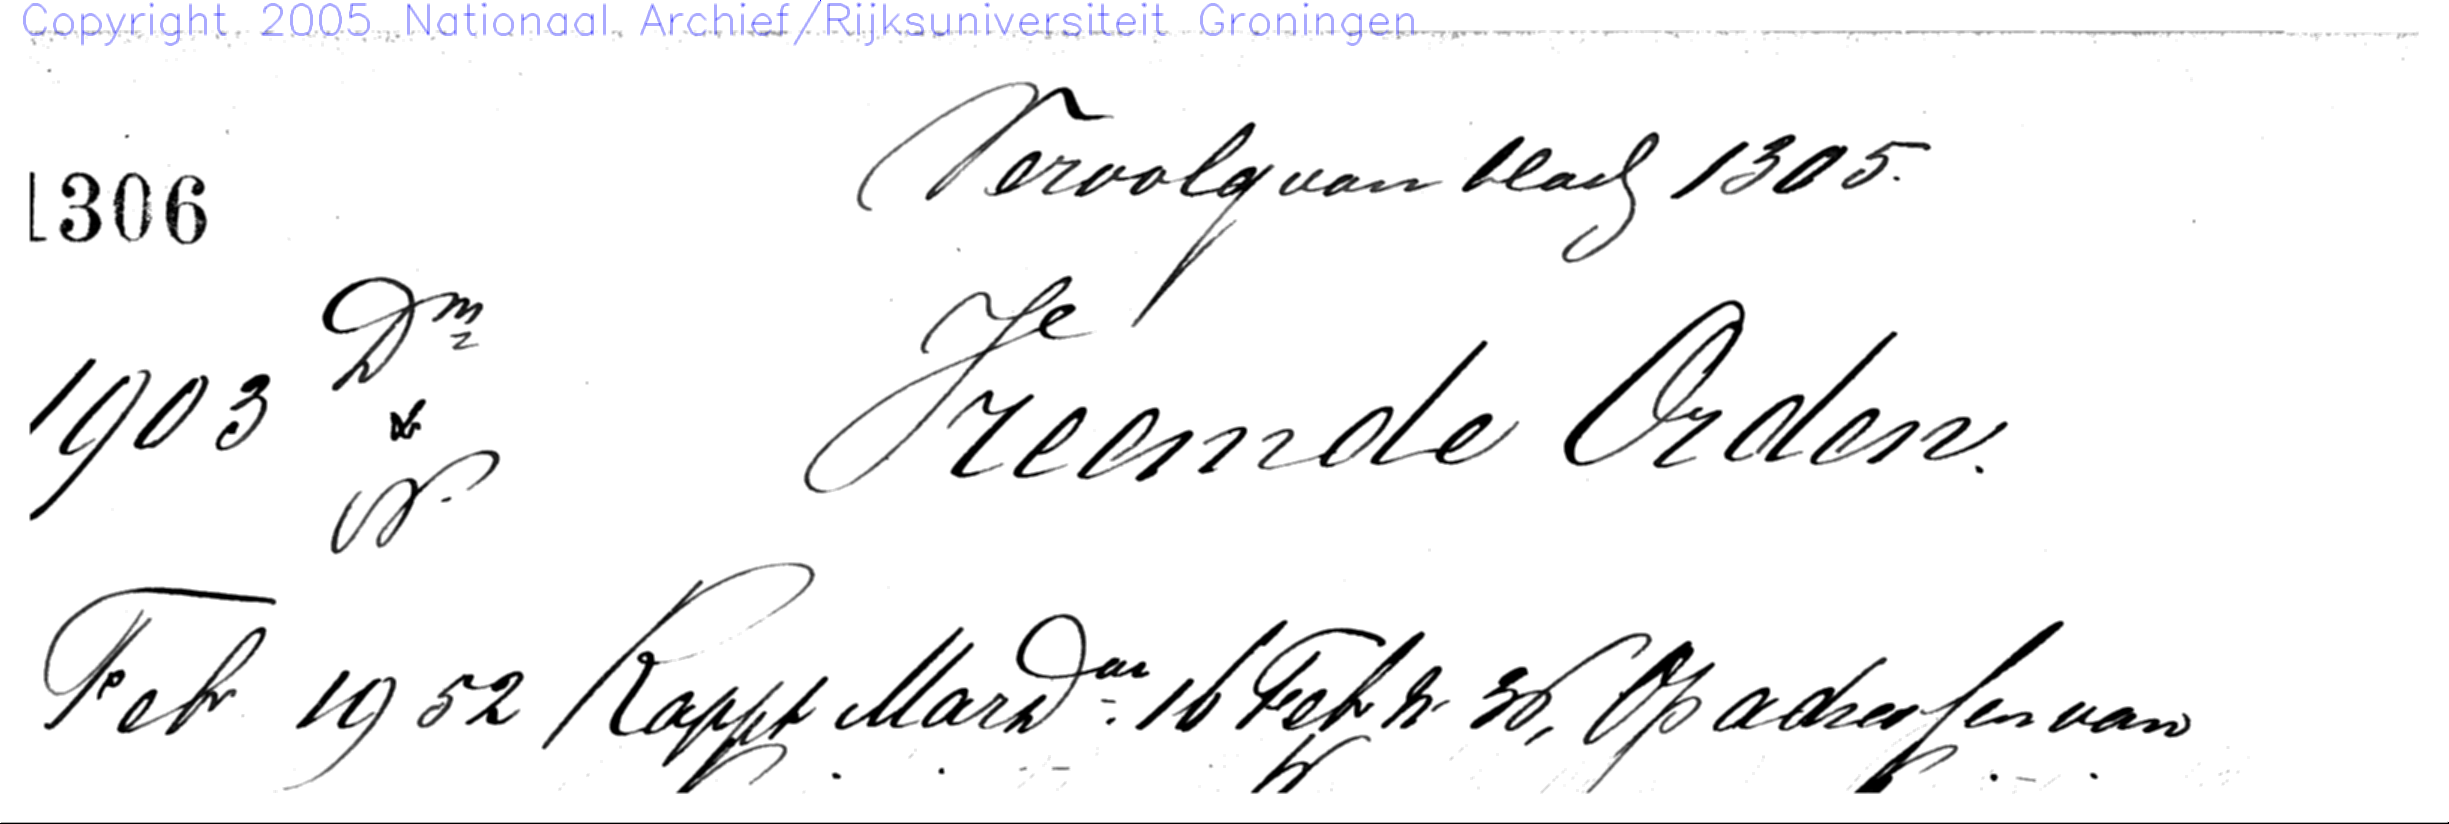 Copyright 2005 Nationaal Archief/Rijksuniversiteit Groningen
Vervolg van bladz 1305.
1306
Dm
1903 &
N.
Vreemde Orden.
Feb 19 52 Rapp Mars Dar 16 Feb 36, Op adressen van